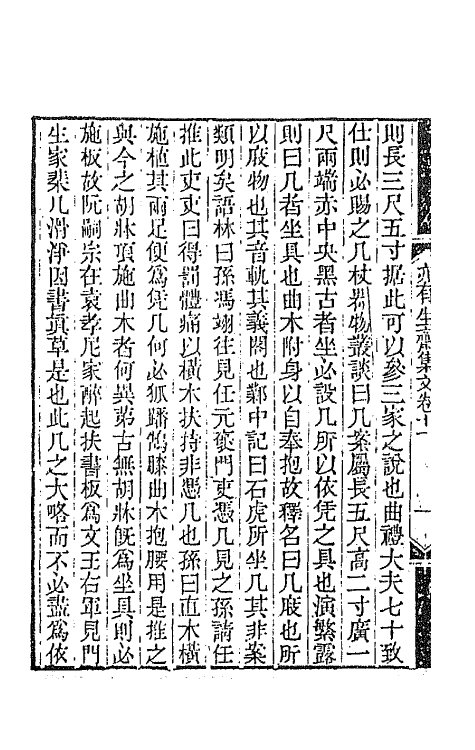 則長三尺五寸据此可以參三家之說也曲禮大夫七十致
仕則必賜之几杖剡物叢談曰几案屬長五尺高二寸廣一
尺兩端赤中央黑古者坐必設几所以依凭之具也演繁露
則曰几者坐具也曲木附身以自奉抱故釋名曰几庪也所
以庪物也其音軌其義閣也鄴中記曰石虎所坐几其非案
類明矣語林曰孫馮翊往見任元褒門吏憑几見之孫請任
推此吏吏曰得罰體痛以橫木扶持非憑几也孫曰直木橫
施植其兩足便為凭几何必狐蹯鵠膝曲木抱腰用是推之
與今之胡牀頂施曲木者何異第古無胡牀旣為坐具則必
施板故阮嗣宗在袁孝尼家醉起扶書板為文王右軍見門
生家棐几滑淨因書眞草是也此几之大略而不必盡為依
亦有生齋集文卷十一